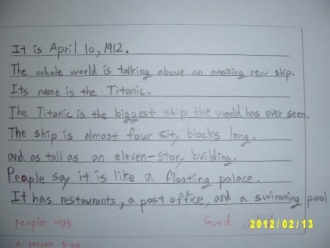 It is April 10, 1912.
The whole world is talking about an amazing new ship.
Its name is the Titanic.
The Titanic is the biggest ship the world has ever seen.
The ship is almost four city blocks long.
and as tall as an eleven-story building.
People say it is like a floating palace.
It has restaurants, a post office, and a swimming pool
people
Good
a person
2012/02/13